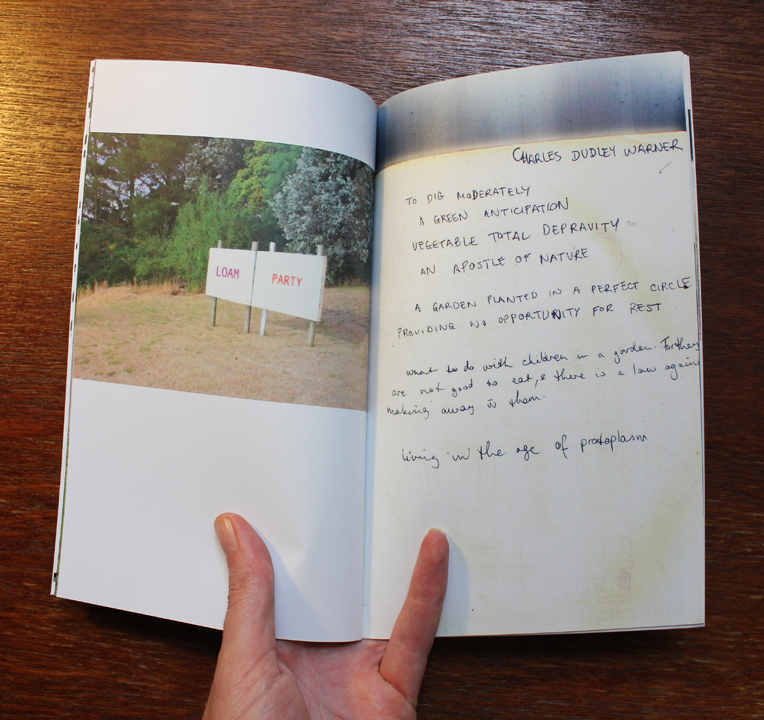 LOAM PARTY
CHARLES DUDLEY WARNER
TO DIG MODERATELY
A GREEN ANTICIPATION
VEGETABLE TOTAL DEPRAVITY
AN APOSTLE OF NATURE
A GARDEN PLANTED IN A PERFECT CIRCLE
PROVIDING NO OPPORTUNITY FOR REST
what to do with children in a garden. For they
are not good to eat, & there is a law again
making away w them.
living in the age of protoplasm